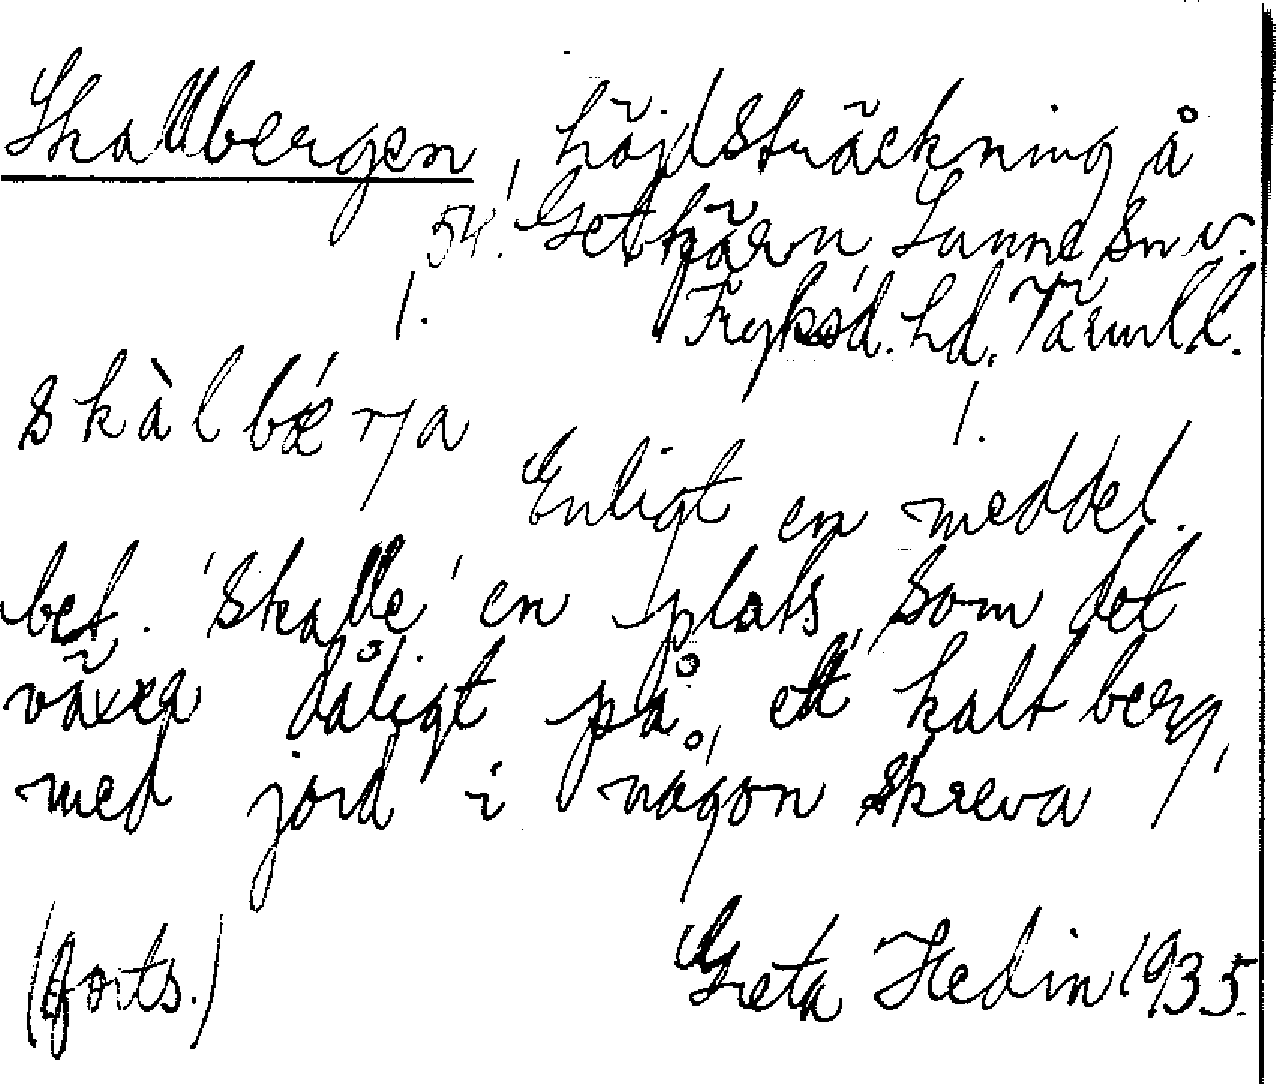 Skallbergen, höjdsträckning å
54. Gettjärn, Sunne sn v.
1. Fryksd. hd. Värml.l.
skàlbǽrja 1.
Enligt en meddel.
bet. 'skalle' en plats, som det
växer dåligt på, ett kalt berg,
med jord i någon skreva
(forts.) Greta Hedin 1935.